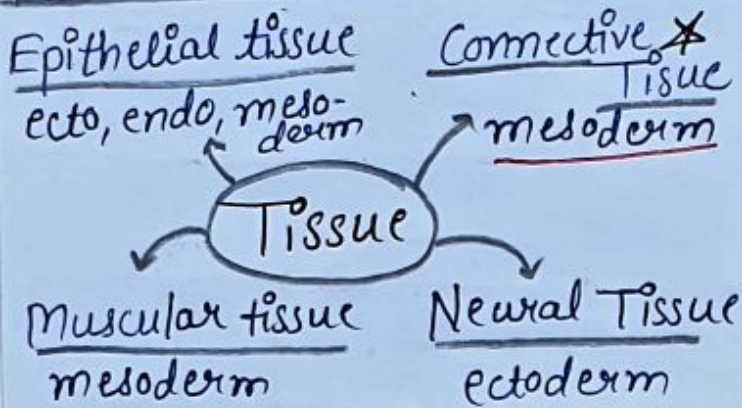 Epithelial tissue
ecto, endo, meso-
derm
Connective
Tisue
mesoderm
Tissue
Muscular tissue
mesoderm
Neural Tissue
ectoderm